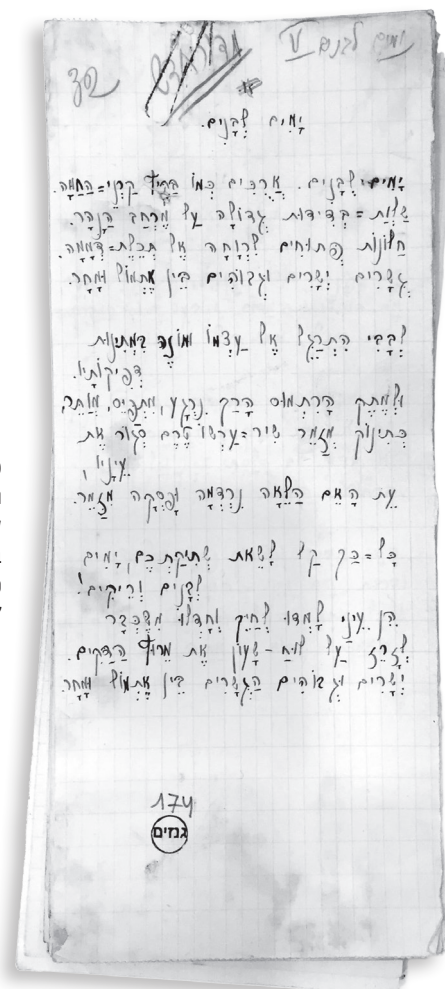 ימים לבנים V
יָמִים לְבָנִים.
יָמִים לְבָנִים. אֲרֻכִּים כְּמוֹ בַּקַּיִץ קַרְנֵי=הַחַמָּה.
שַׁלְוַת=בְּדִידוּת גְּדוֹלָה עַל מֶרְחַב הַנָּהָר.
חַלּוֹנוֹת פְּתוּחִים לִרְוָחָה אֶל תְּכֵלֶת=דְּמָמָה.
גְּשָׁרִים יְשָׁרִים וּגְבוֹהִים בֵּין אֶתְמוֹל וּמָחָר.
לְבָבִי הִתְרַגֵּל אֶל עַצְמוֹ וּמוֹנֶה בִּמְתִינוּת
דְּפִיקוֹתָיו.
וּלְמֶתֶק הָרִתְמוּס הָרַךְ נִרְגָּע, מִתְפַּיֵּס, מְוַתֵּר,
כְּתִינוֹק מְזַמֵּר שִׁיר=עַרְשׂוֹ טֶרֶם סְגוֹר אֶת
עֵינָיו,
עֵת הָאֵם הַלֵּאָה נִרְדְּמָה וּפָסְקָה מִזַּמֵּר.
כָּל=כַּךְ קַל לָשֵׂאת שְׁתִיקַתְכֶם, יָמִים
לְבָנִים וְרֵיקִים!
הֵן עֵינַי לָמְדוּ לְחַיֵּךְ וְחָדְלוּ מִשֶּׁכְּבָר
לְזָרֵז עַל לוּחַ-שָׁעוֹן אֶת מֵרוֹץ הַדַּקִּים.
יְשָׁרִים וּגְבוֹהִים הַגְּשָׁרִים בֵּין אֶתְמוֹל וּמָחָר.
174
גנזים